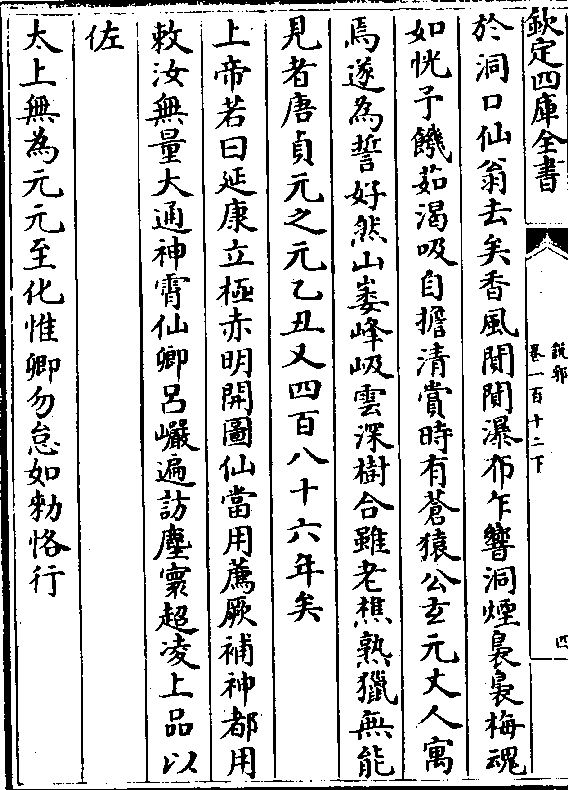 欽定四庫全書
說郛
卷一百十二下
四
於洞口仙翁去矣香風閒閒瀑布乍響洞煙裊裊梅魂
如恍予饑茹渴吸自擔清賞時有蒼猿公玄元丈人寓
焉遂為誓好然山萎峰岋雲深樹合雖老樵熟獵無能
見者唐貞元之元乙丑又四百八十六年矣
上帝若曰延康立極赤明開圖仙當用薦厥補神都用
敕汝無量大通神霄仙卿呂巖遍訪塵寰超凌上品以
佐
太上無為元元至化惟卿勿怠如勑恪行